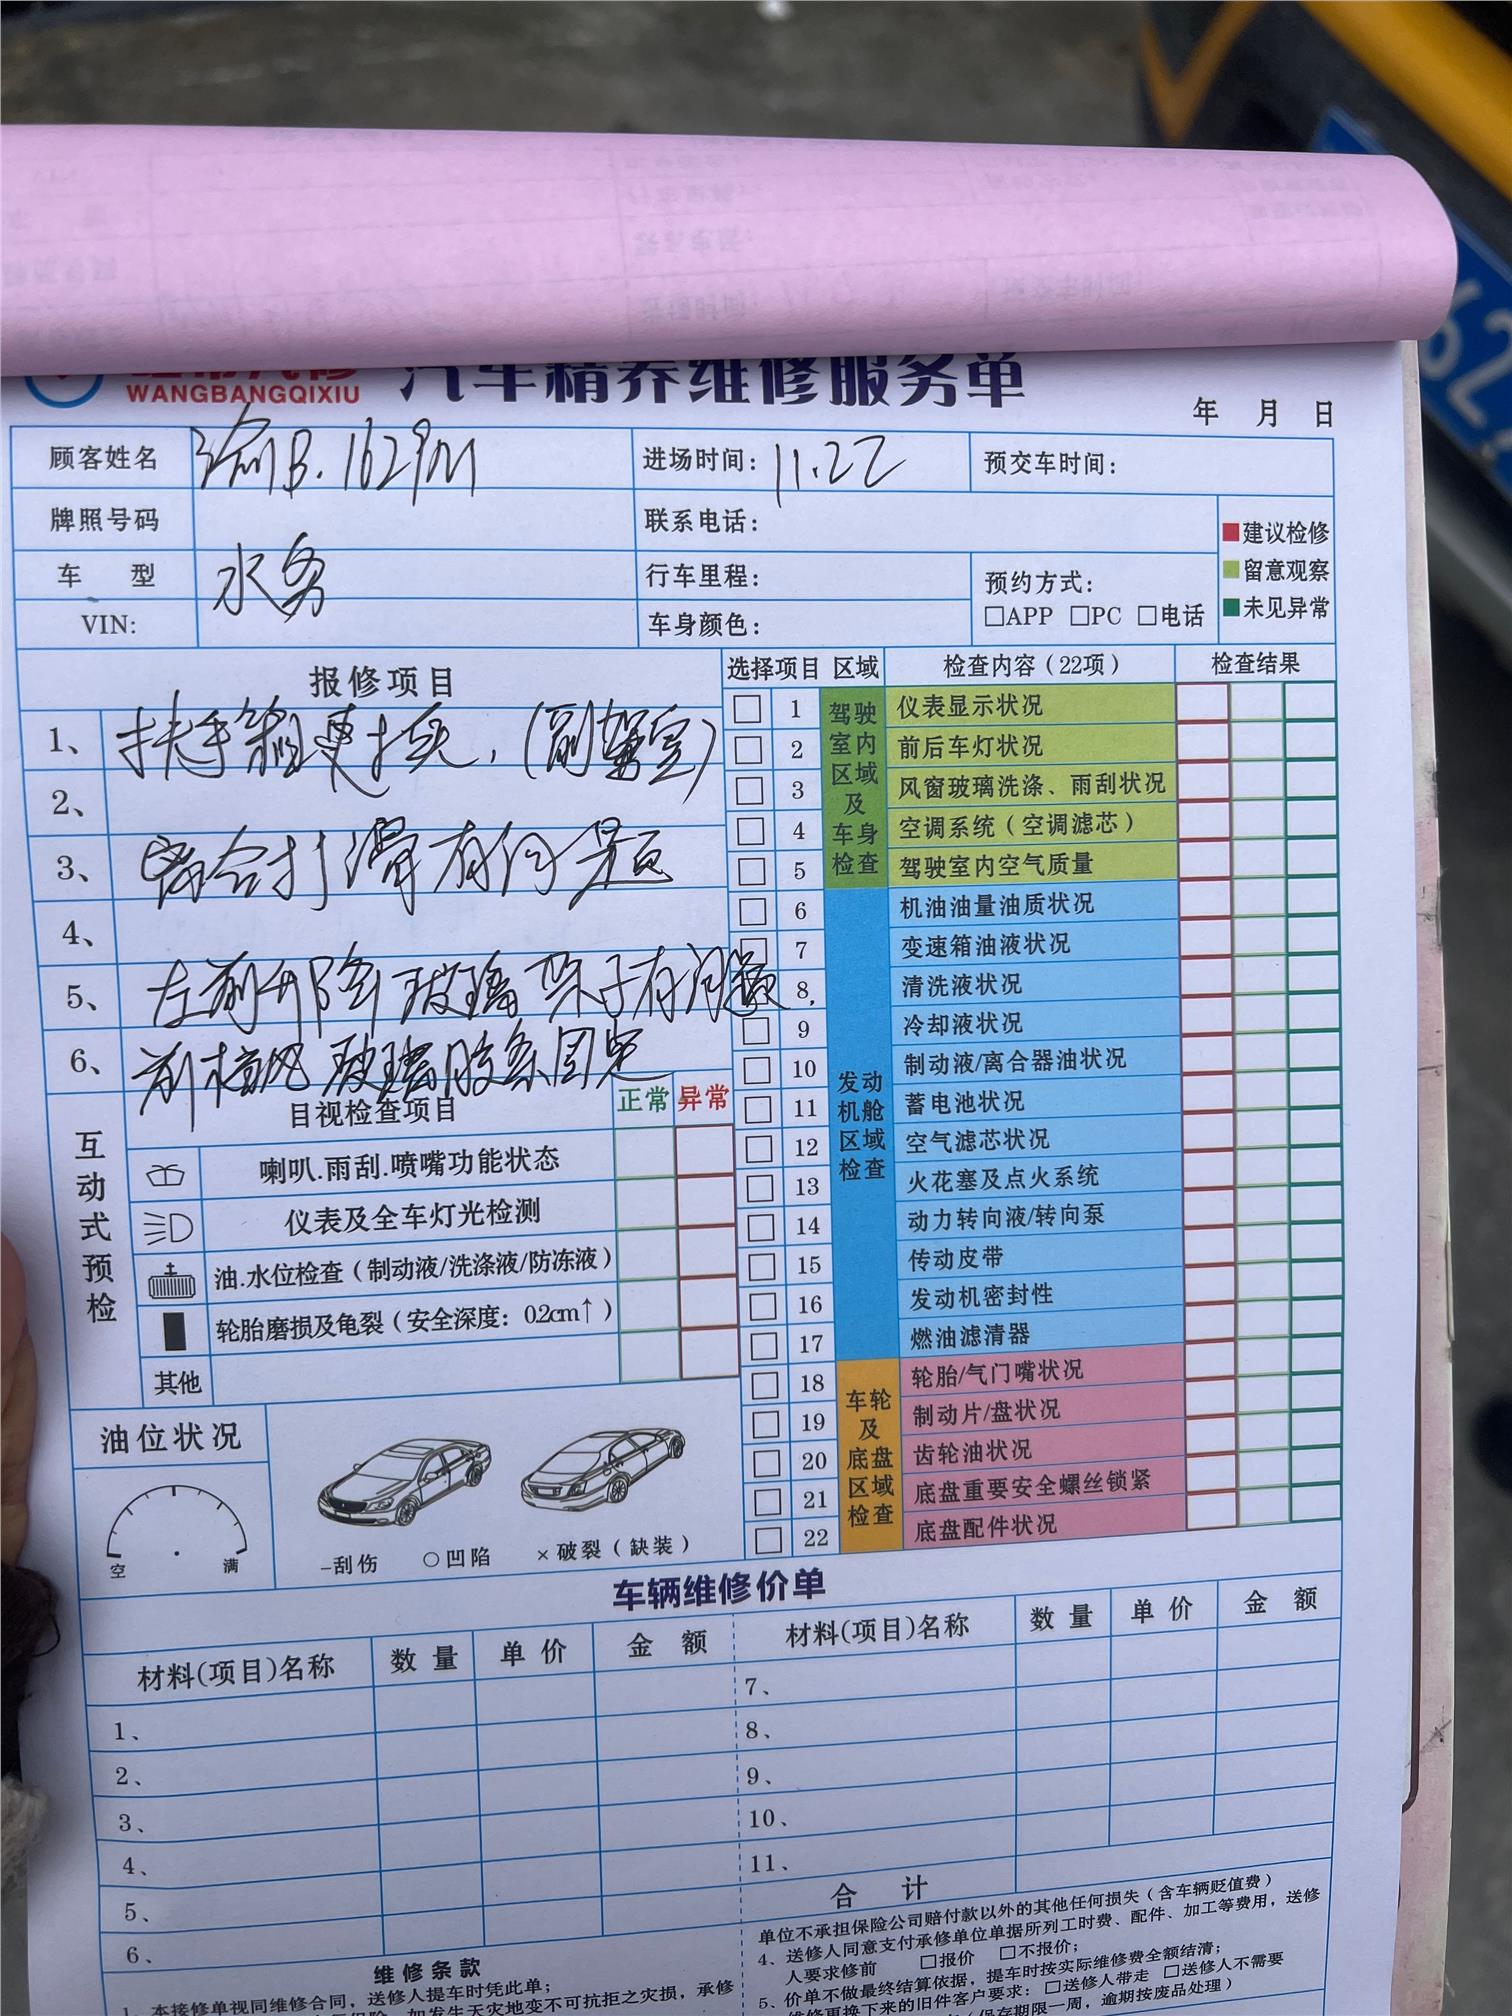 WANGBANGQIXIU 汽车精养维修服务单
年 月 日
顾客姓名 渝B.1629M 进场时间: 11.22 预交车时间:
牌照号码 联系电话:
建议检修
留意观察
未见异常
车 型 水务 行车里程: 预约方式:
□APP □PC □电话
VIN: 车身颜色:
报修项目
1、扶手箱更换,(副驾室)
2、
3、离合打滑有问题
4、
5、左前升降玻璃 有问题
6、前挡风玻璃胶条固定
选择项目 区域 检查内容(22项) 检查结果
驾驶室内区域及车身检查
□ 1 仪表显示状况
□ 2 前后车灯状况
□ 3 风窗玻璃洗涤、雨刮状况
□ 4 空调系统(空调滤芯)
□ 5 驾驶室内空气质量
发动机舱区域检查
□ 6 机油油量油质状况
□ 7 变速箱油液状况
□ 8 清洗液状况
□ 9 冷却液状况
□ 10 制动液/离合器油状况
□ 11 蓄电池状况
□ 12 空气滤芯状况
□ 13 火花塞及点火系统
□ 14 动力转向液/转向泵
□ 15 传动皮带
□ 16 发动机密封性
□ 17 燃油滤清器
车轮及底盘区域检查
□ 18 轮胎/气门嘴状况
□ 19 制动片/盘状况
□ 20 齿轮油状况
□ 21 底盘重要安全螺丝锁紧
□ 22 底盘配件状况
互动式预检
目视检查项目 正常 异常
喇叭.雨刮.喷嘴功能状态
仪表及全车灯光检测
油.水位检查(制动液/洗涤液/防冻液)
轮胎磨损及龟裂(安全深度: 0.2cm↑)
其他
油位状况
空 满
-刮伤 ○凹陷 ×破裂(缺装)
车辆维修价单
材料(项目)名称 数量 单价 金额 材料(项目)名称 数量 单价 金额
1、 7、
2、 8、
3、 9、
4、 10、
5、 11、
6、 合 计
维修条款
1、本接修单视同维修合同,送修人提车时凭此单;
如发生天灾地变不可抗拒之灾损,承修
单位不承担保险公司赔付款以外的其他任何损失(含车辆贬值费)
4、送修人同意支付承修单位单据所列工时费、配件、加工等费用,送修
人要求修前 □报价 □不报价;
5、价单不做最终结算依据,提车时按实际维修费全额结清;
维修更换下来的旧件客户要求: □送修人带走 □送修人不需要
(保存期限一周,逾期按废品处理)
62